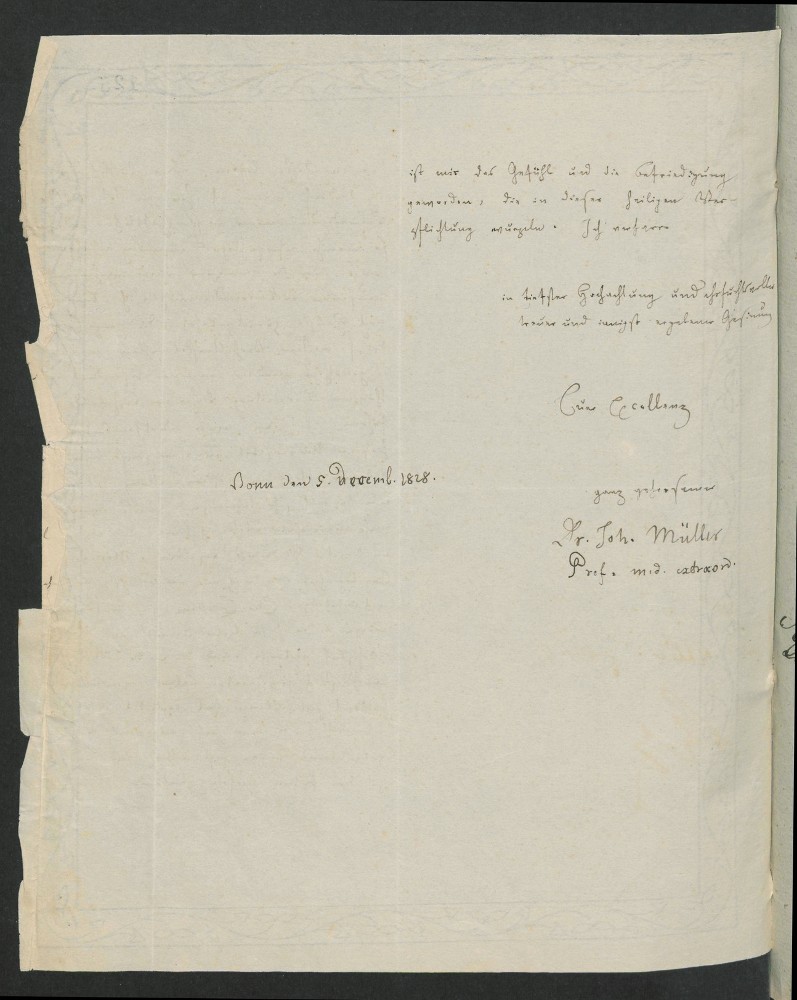 ist mir das Gefühl und die Befriedigung
geworden, die in dieser heiligen Ver-
pflichtung wurzeln. Ich verharre
in tiefster Hochachtung und ehrfurchtsvoller
treuer und innigst ergebener Gesinnung
Euer Excellenz
Bonn den 5. Decemb. 1828.
ganz gehorsamer
Dr. Joh. Müller
Prof. med. extraord.